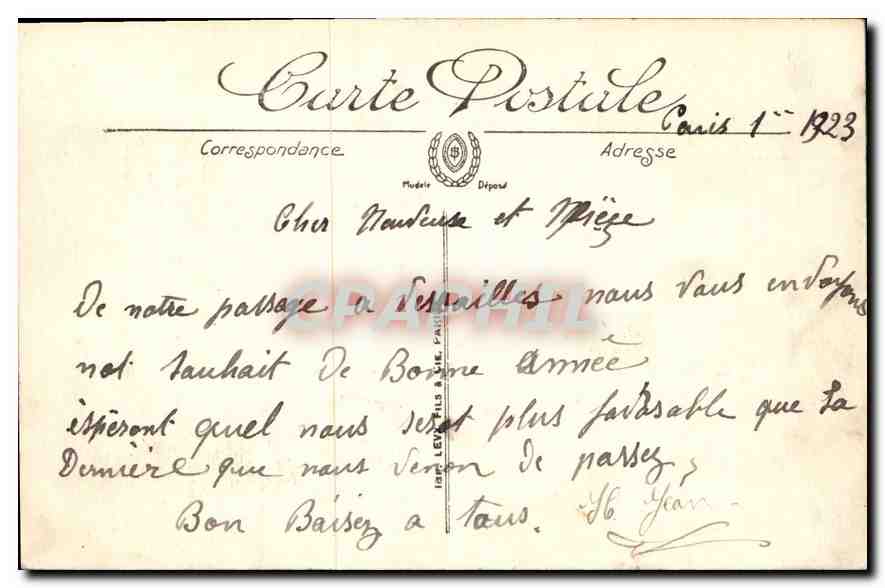 Carte Postale
Paris 1er 1923
Correspondance
Adresse
Modèle Déposé
Cher et Nièze
De notre passage a Versailles nous vous envoyons
not souhait de Bonne année
èspèront quel nous serot plus favorable que La
Dernière que nous venon de passez,
Bon Baisez a tous. Jean
IMP. LEVY FILS & CIE. PARIS
CPAPHIL